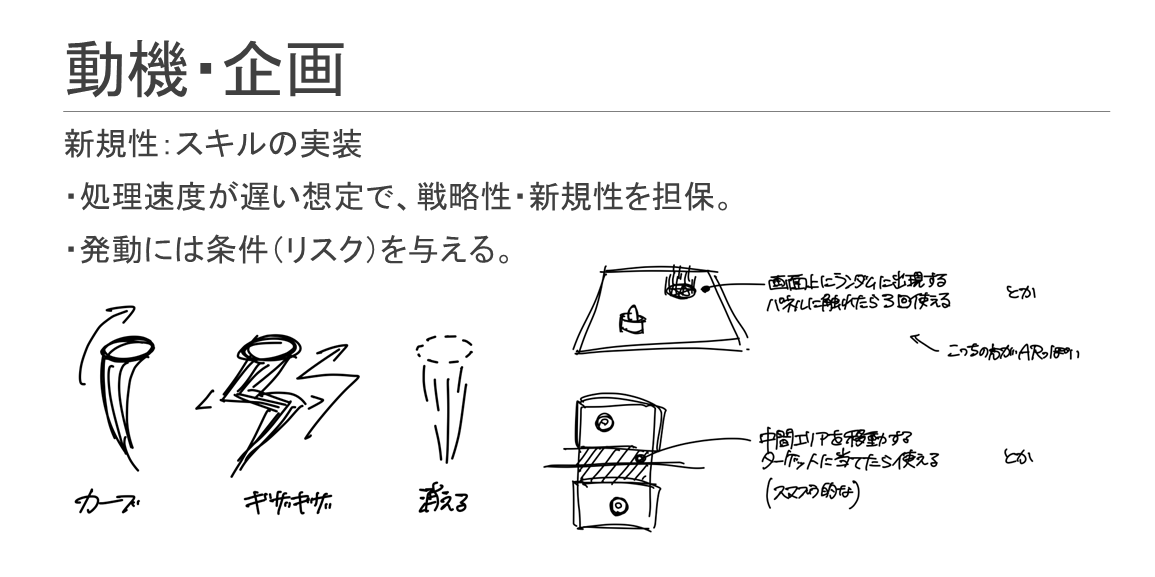 動機・企画
新規性：スキルの実装
・処理速度が遅い想定で、戦略性・新規性を担保。
・発動には条件（リスク）を与える。
画面上にランダムに出現する
パネルに触れたら3回使える
とか
こっちの方がARっぽい
中間エリアを移動する
ターゲットに当てたら使える
(スマブラ的な)
とか
カーブ
ギザギザ
消える